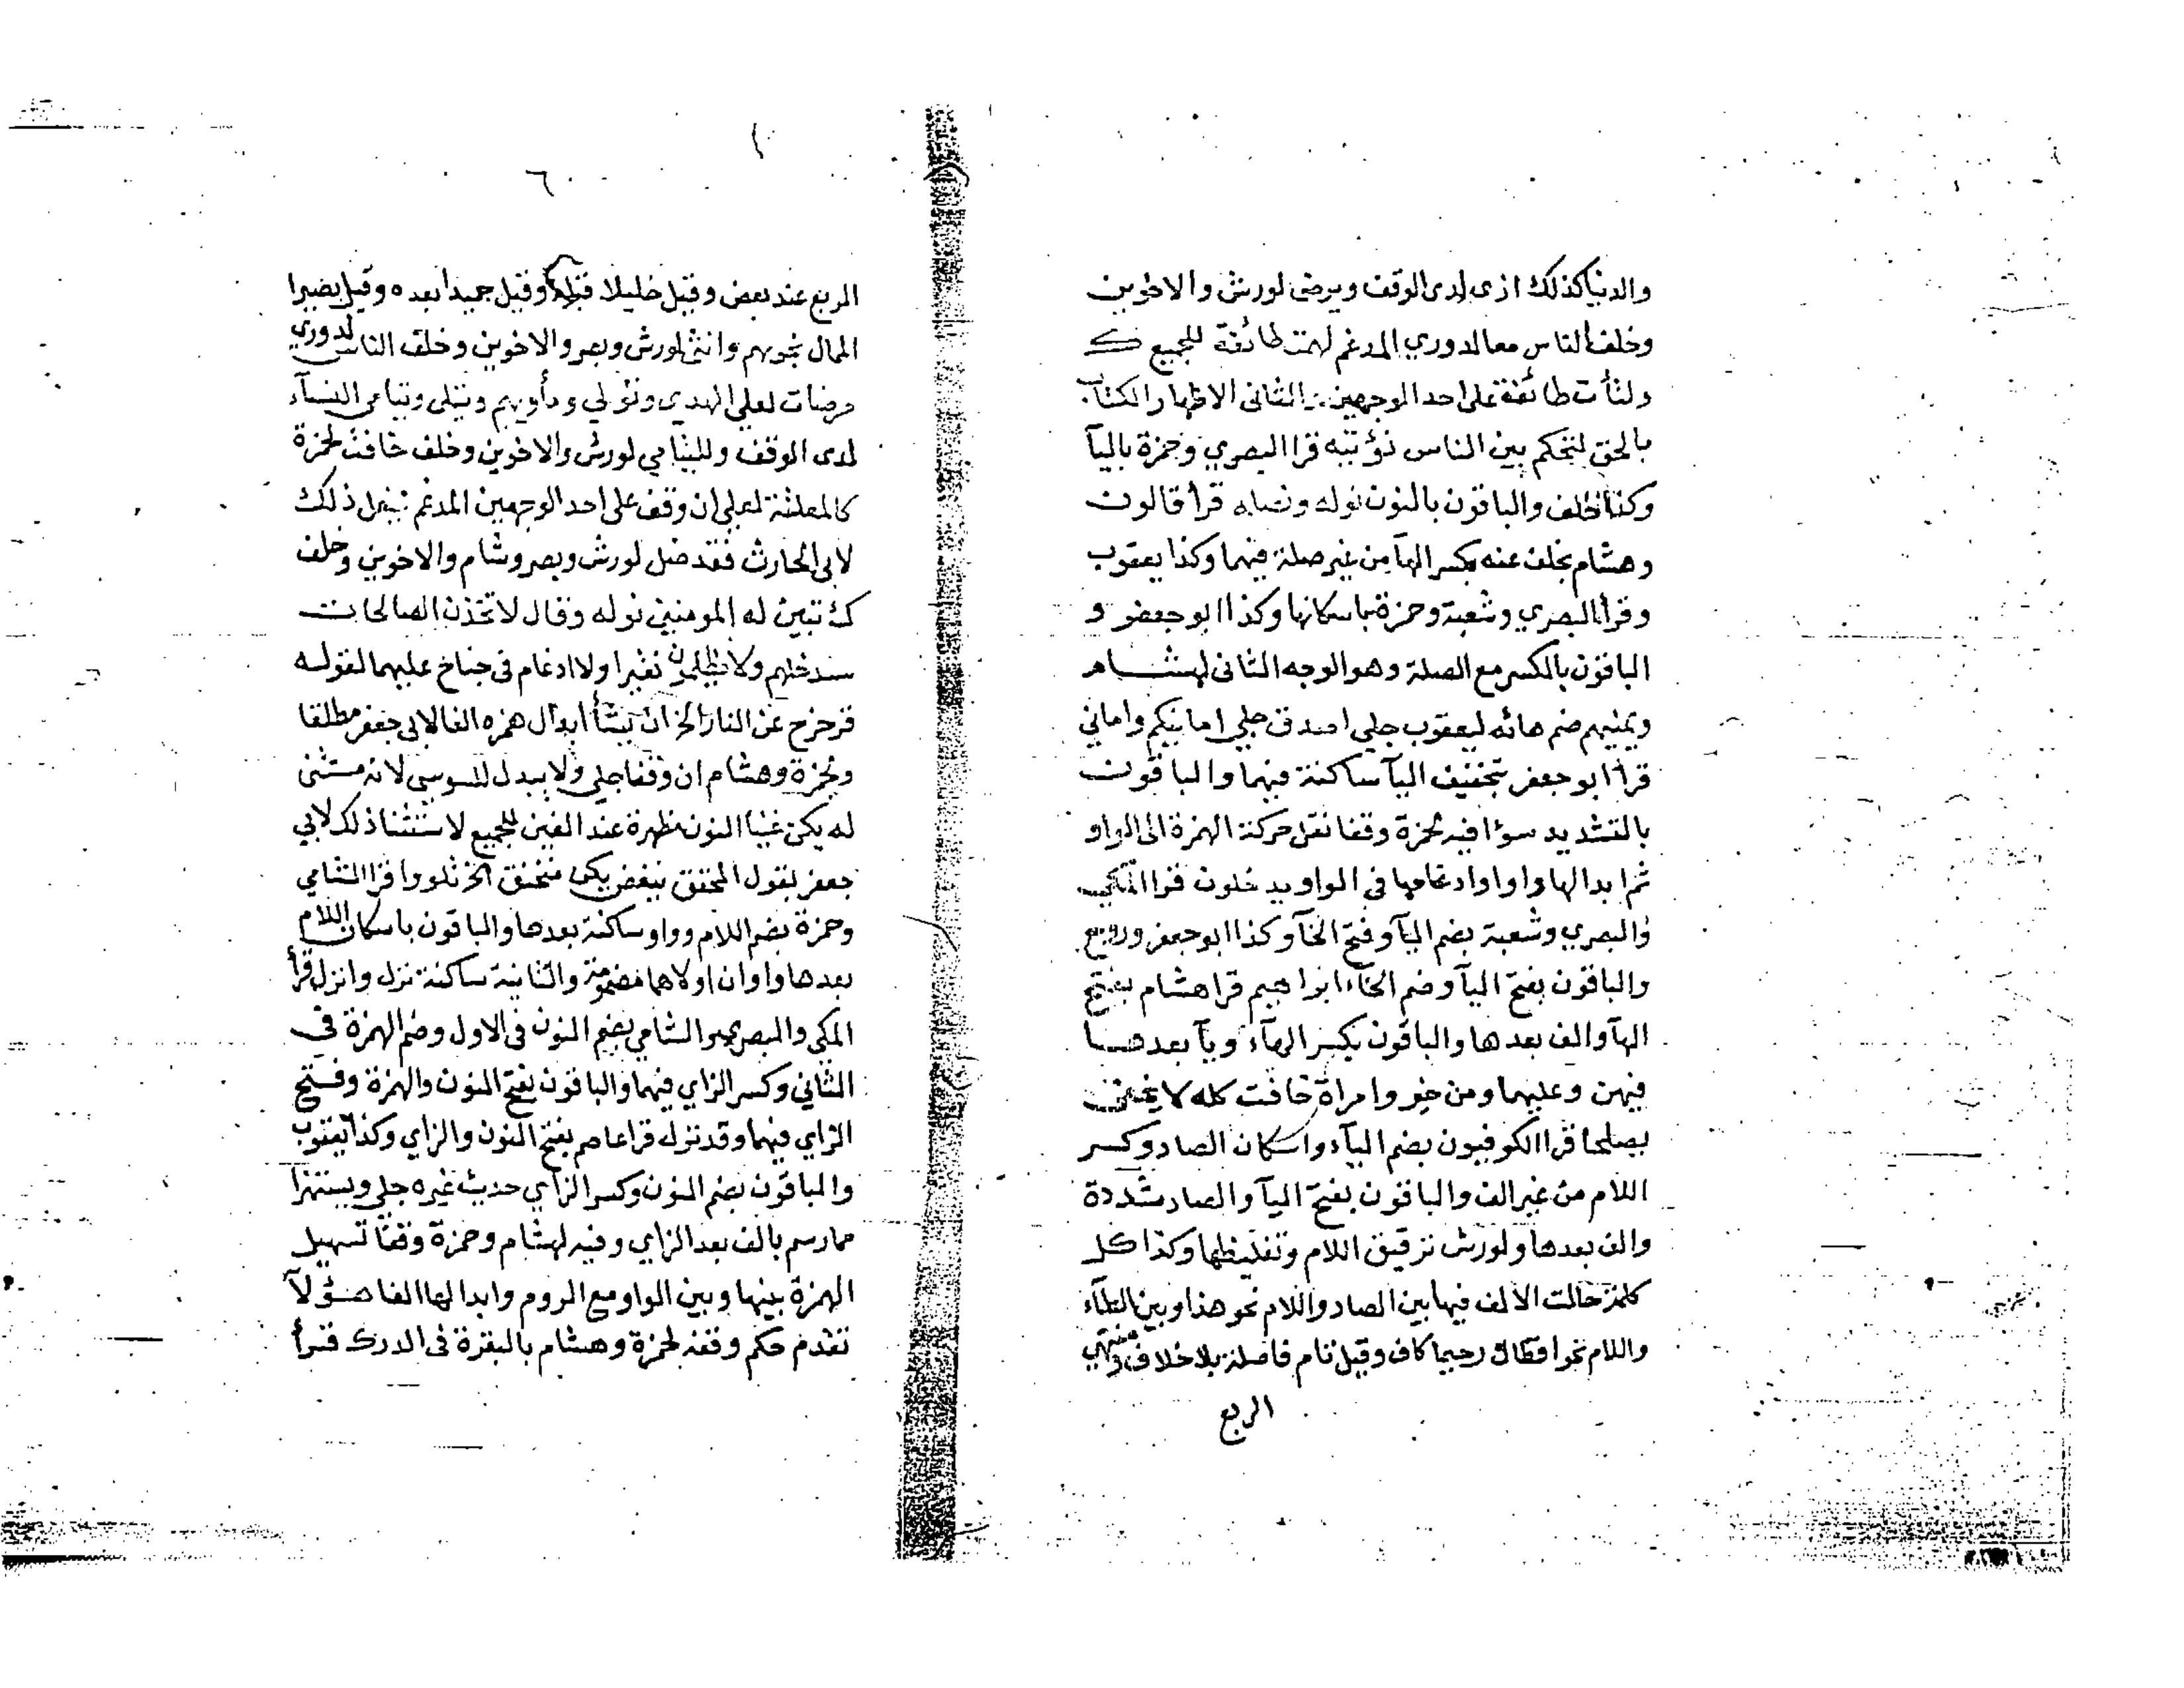 والدنيا كذلك اذى لدى الوقف ويرضى لورش والاخوين
وخلف الناس معا لدوري المدغم لهمت طائفة للجميع ك
ولتأت طائفة على احد الوجهين والثاني الاظهار الكتاب
بالحق لتحكم بين الناس نؤتيه قرا البصري وحمزة باليآ
وكذا خلف والباقون بالنون نوله ونصله قرأ قالون
وهشام بخلف عنه بكسر الهآ من غير صلة فيهما وكذا يعقوب
وقرأ البصري وشعبة وحمزة باسكانها وكذا ابو جعفر و
الباقون بالكسر مع الصلة وهو الوجه الثاني لهشام
ويمنيهم ضم هائه ليعقوب جلي اصدق جلي امانيكم واماني
قرأ ابو جعفر بتخفيف اليآ ساكنة فيهما والباقون
بالتشديد سوءا فيه لحمزة وقفا نقل حركة الهمزة الى الواو
ثم ابدالها واوا وادغامها في الواو يدخلون قرا المكي
والبصري وشعبة بضم اليآ وفتح الخآ وكذا ابو جعفر وروح
والباقون بفتح اليآ وضم الخآء ابراهيم قرا هشام بفتح
الهآ والف بعدها والباقون بكسر الهآء ويآ بعدها
فيهن وعليهما ومن خير وامراة خافت كله لا يخفى
يصلحا قرا الكوفيون بضم اليآء واسكان الصاد وكسر
اللام من غير الف والباقون بفتح اليآ والصاد مشددة
والف بعدها ولورش ترقيق اللام وتغليظها وكذا كل
كلمة حالت الالف فيها بين الصاد واللام نحو هذا وبين الطآء
واللام نحو افطال رحيما كاف وقيل تام فاصلة بلا خلاف ومنتهى
الربع
٦
الربع عند بعض وقيل خليلا قبله وقيل حميدا بعده وقيل بصيرا
الممال نجويهم وانثى لورش وبصر والاخوين وخلف الناس لدوري
مرضات لعلي الهدى وتولى ومأويهم ويتلى ويتامى النسآء
لدى الوقف ولليتامى لورش والاخوين وخلف خافت لحمزة
كالمعلقة لعلي ان وقف على احد الوجهين المدغم يفعل ذلك
لابي الحارث فقد ضل لورش وبصر وشام والاخوين وخلف
ك تبين له المومنين نوله وقال لاتخذن الصالحات
سندخلهم ولا يظلمون نقيرا ولا ادغام في جناح عليهما لقوله
فزحزح عن النار الخ ان يشأ ابدال همزه الفا لابي جعفر مطلقا
ولحمزة وهشام ان وقفا جلي ولا يبدل للسوسي لانه مستثنى
له يكن غنيا النون مظهرة عند الغين للجميع لاستثنا ذلك لابي
جعفر بقول المحقق ينغض يكن منخنق الخ تلووا قرا الشامي
وحمزة بضم اللام وواو ساكنة بعدها والباقون باسكان اللام
بعدها واوان اولاهما مضمومة والثانية ساكنة نزل وانزل قرأ
المكي والبصري والشامي بضم النون في الاول وضم الهمزة في
الثاني وكسر الزاي فيهما والباقون بفتح النون والهمزة وفتح
الزاي فيهما وقد نزل قرا عاصم بفتح النون والزاي وكذا يعقوب
والباقون بضم النون وكسر الزاي حديث غيره جلي ويستهزا
مما رسم بالف بعد الزاي وفيه لهشام وحمزة وقفا تسهيل
الهمزة بينها وبين الواو مع الروم وابدالها الفا هؤلآ
تقدم حكم وقفه لحمزة وهشام بالبقرة في الدرك قرأ